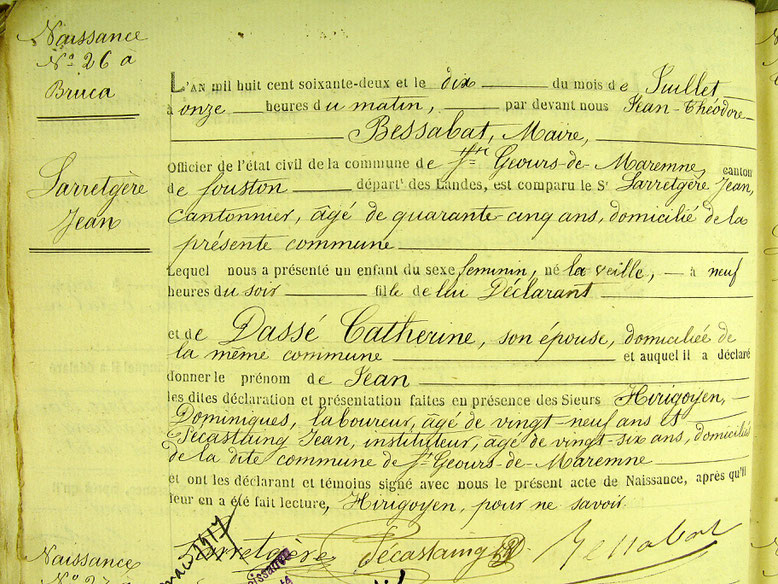 Naissance
N° 26 a
Bruca
Larretgère
Jean
L'AN mil huit cent soixante-deux et le dix du mois de Juillet
à onze heures du matin, par devant nous Jean-Théodore
Bessabat, Maire,
Officier de l'état civil de la commune de St Geours-de-Maremne, canton
de Souston départt des Landes, est comparu le Sr Larretgère Jean,
cantonnier, âgé de quarante-cinq ans, domicilié de la
présente commune
Lequel nous a présenté un enfant du sexe feminin, né la veille, à neuf
heures du soir fille de lui Déclarant
et de Dassé Catherine, son épouse, domiciliée de
la même commune et auquel il a déclaré
donner le prénom de Jean
les dites déclaration et présentation faites en présence des Sieurs Hirigoyen,
Dominiques, laboureur, âgé de vingt-neuf ans et
Sécastaing Jean, instituteur, âgé de vingt-six ans, domiciliés
de la dite commune de St Geours-de-Maremne
et ont les déclarant et témoins signé avec nous le présent acte de Naissance, après qu'il
leur en a été fait lecture, Hirigoyen, pour ne savoir.
1917
Larretgère Sécastaing Bessabat
Naissance